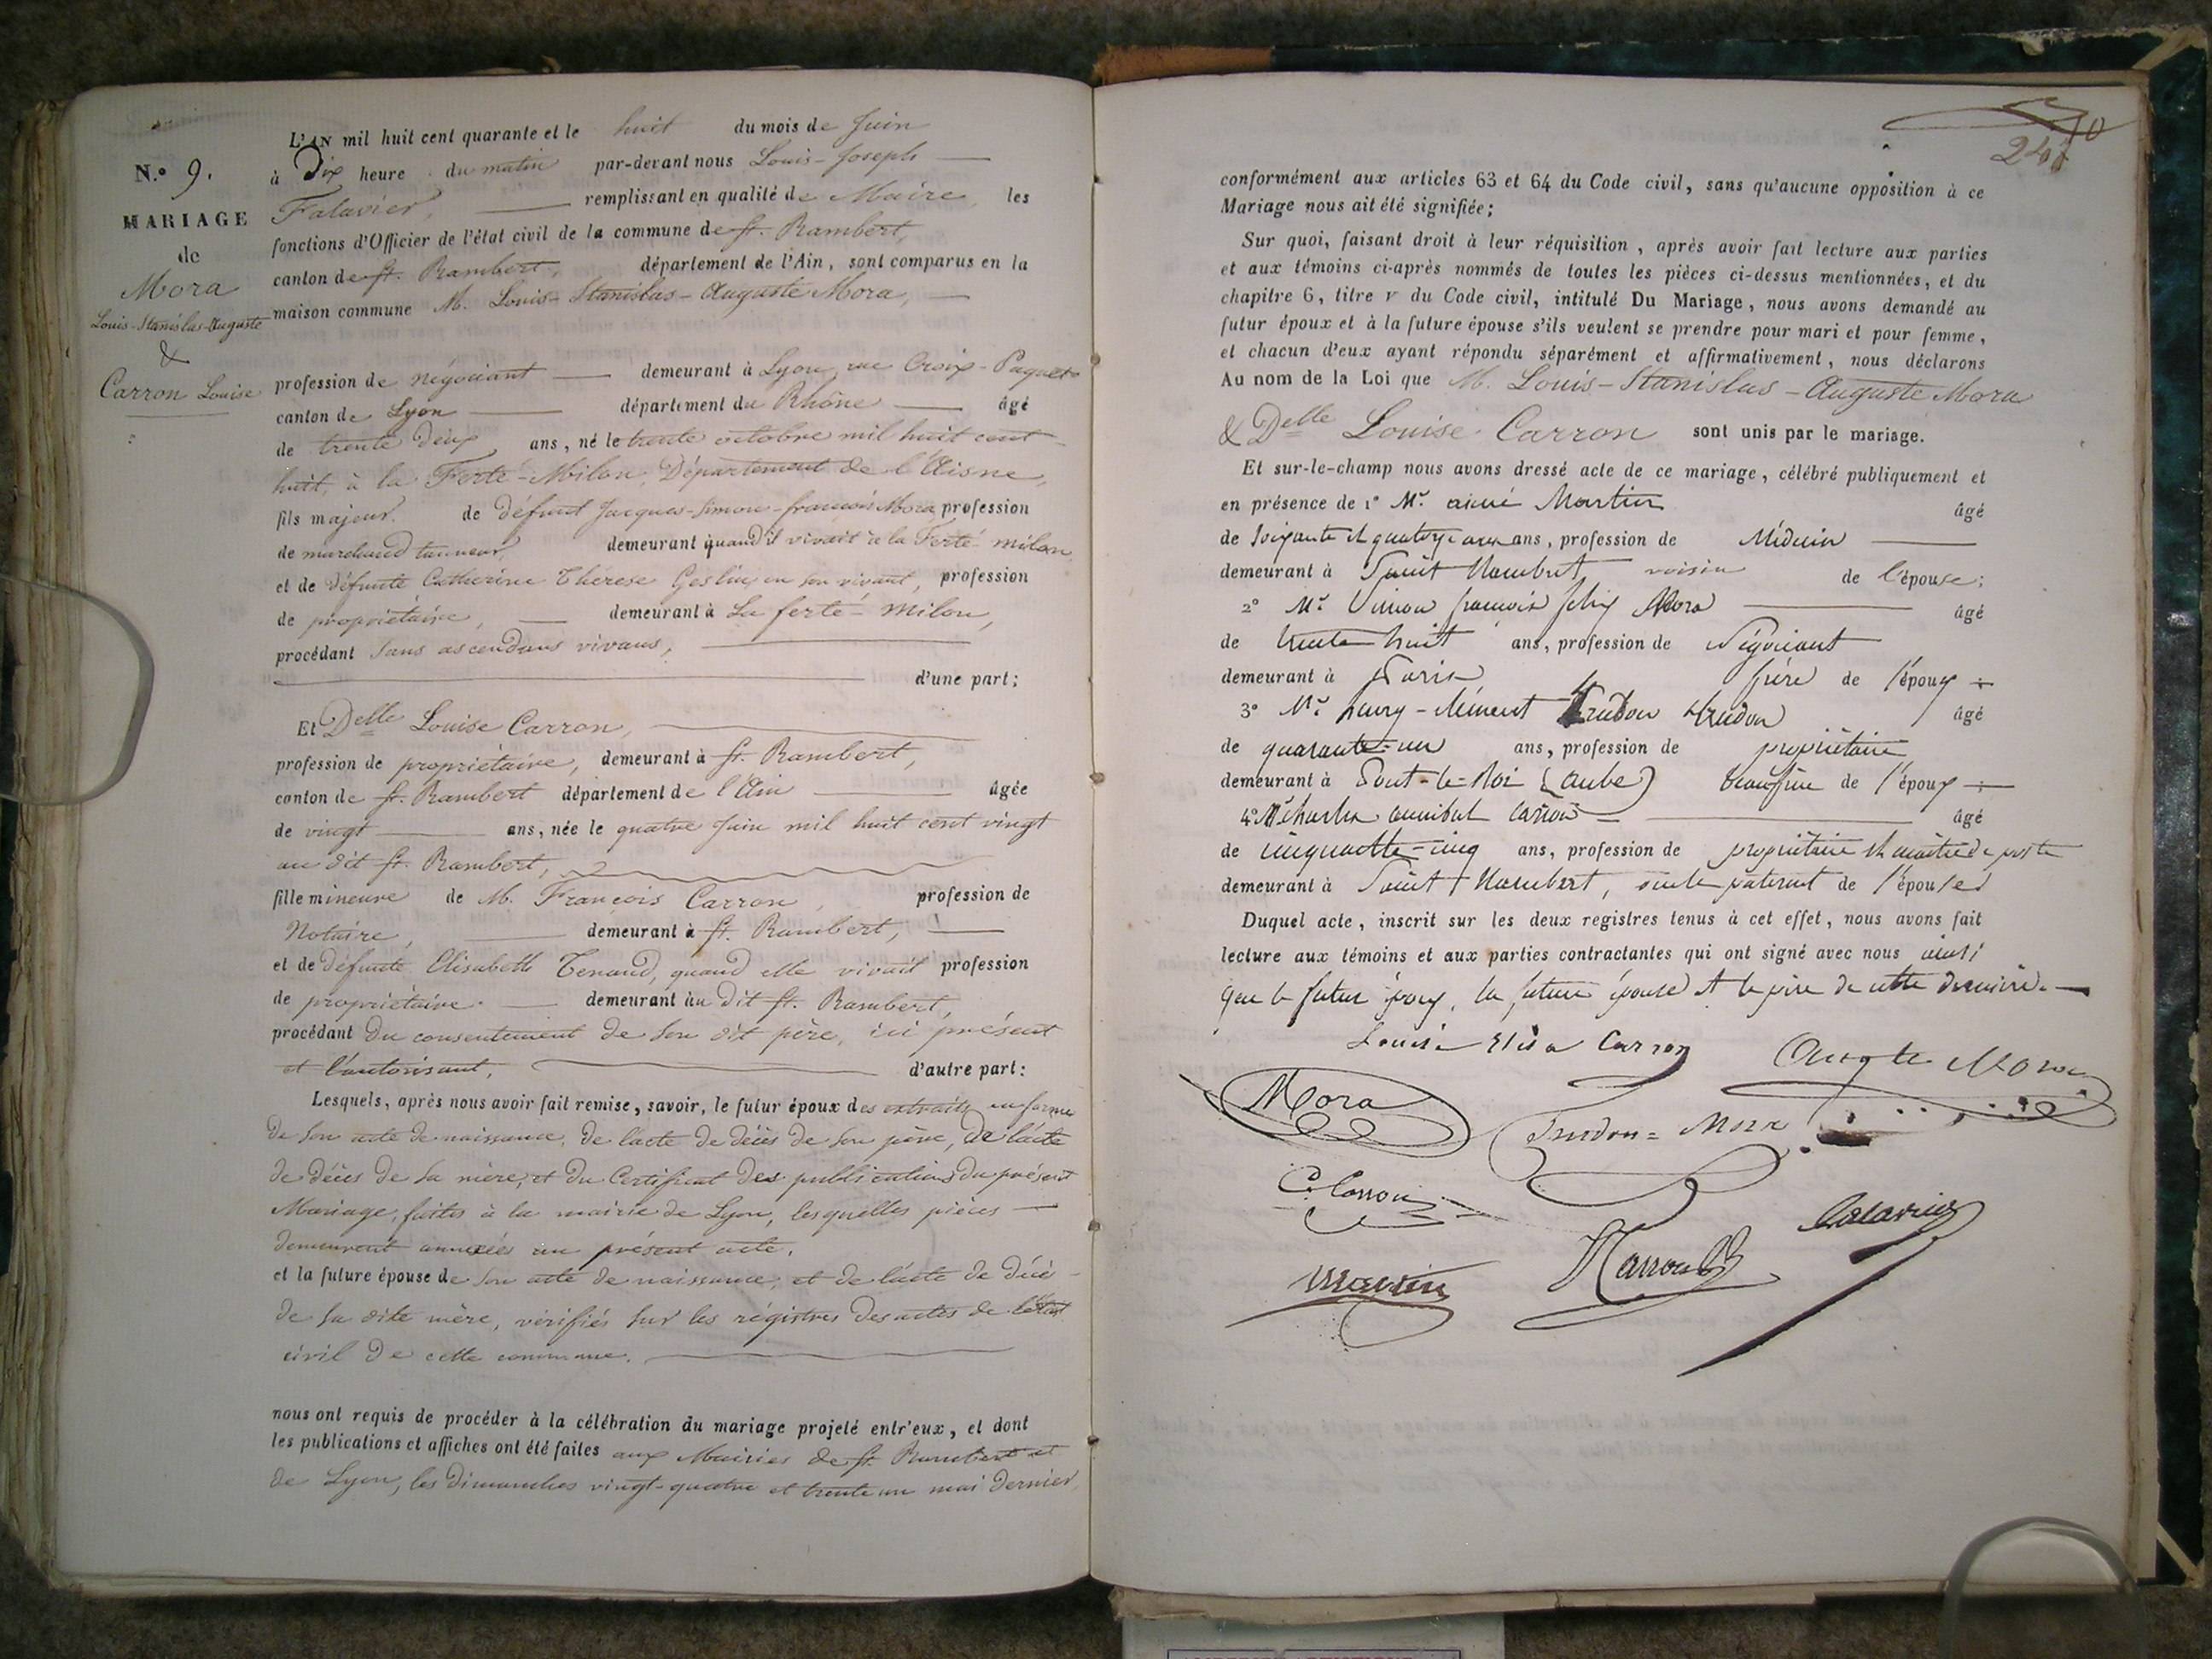 N.o 9.
MARIAGE
de
Mora
Louis-Stanislas-Auguste
&
Carron Louise
L'AN mil huit cent quarante et le huit du mois de Juin
à Dix heure du matin par-devant nous Louis-Joseph
Falavier, remplissant en qualité de Maire, les
fonctions d'Officier de l'état civil de la commune de St. Rambert,
canton de St. Rambert, département de l'Ain, sont comparus en la
maison commune M. Louis-Stanislas-Auguste Mora,
profession de négociant demeurant à Lyon, rue Croix-Paquet
canton de Lyon département du Rhône âgé
de trente deux ans, né le trente octobre mil huit cent
huit, à la Ferté-Milon, Département de l'Aisne,
fils majeur de défunt Jacques-Simon-françois Mora profession
de marchand tanneur, demeurant quand il vivait à la Ferté-milon,
et de défunte Catherine Thérese Geslin en son vivant, profession
de propriétaire, demeurant à La ferté-Milon,
procédant sans ascendans vivans,
d'une part;
Et Delle Louise Carron,
profession de propriétaire, demeurant à St. Rambert,
canton de St. Rambert département de l'Ain âgée
de vingt ans, née le quatre Juin mil huit cent vingt
au dit St. Rambert,
fille mineure de M. François Carron, profession de
Notaire, demeurant à St. Rambert,
et de défunte Elisabeth Tenand, quand elle vivait profession
de propriétaire demeurant au dit St. Rambert,
procédant du consentement de son dit père, ici présent
et l'autorisant, d'autre part:
Lesquels, après nous avoir fait remise, savoir, le futur époux des extraits en forme
de son acte de naissance, de l'acte de décès de son père, de l'acte
de décès de sa mère, et du Certificat des publications du présent
Mariage, faites à la mairie de Lyon, lesquelles pièces
demeurent annexées au présent acte.
et la future épouse de son acte de naissance, et de l'acte de décè-
de sa dite mère, vérifiés sur les régistres des actes de l'état
civil de cette commune.
nous ont requis de procéder à la célébration du mariage projeté entr'eux, et dont
les publications et affiches ont été faites aux Mairies de St. Rambert et
de Lyon, les dimanches vingt-quatre et trente un mai dernier,
240
conformément aux articles 63 et 64 du Code civil, sans qu'aucune opposition à ce
Mariage nous ait été signifiée;
Sur quoi, faisant droit à leur réquisition, après avoir fait lecture aux parties
et aux témoins ci-après nommés de toutes les pièces ci-dessus mentionnées, et du
chapitre 6, titre v du Code civil, intitulé Du Mariage, nous avons demandé au
futur époux et à la future épouse s'ils veulent se prendre pour mari et pour femme,
et chacun d'eux ayant répondu séparément et affirmativement, nous déclarons
Au nom de la Loi que M. Louis-Stanislas-Auguste Mora
& Delle Louise Carron sont unis par le mariage.
Et sur-le-champ nous avons dressé acte de ce mariage, célébré publiquement et
en présence de 1° Mr. aimé Martin âgé
de soixante et quatorze ans ans, profession de Médecin
demeurant à Saint Rambert voisin de l'épouse;
2° Mr. Simon françois félix Mora âgé
de trente huit ans, profession de Négociant
demeurant à Paris frère de l'époux;
3° Mr. henry-clément Trudon trudon âgé
de quarante-un ans, profession de propriétaire
demeurant à Pont-le-Roi (aube) beaufrère de l'époux;
4° Mr charles annibal carron âgé
de cinquante-cinq ans, profession de propriétaire et maitre de poste
demeurant à Saint Rambert, oncle paternel de l'épouse;
Duquel acte, inscrit sur les deux registres tenus à cet effet, nous avons fait
lecture aux témoins et aux parties contractantes qui ont signé avec nous ainsi
que le futur époux, la future épouse et le père de cette dernière.
Louise Elisa Carron
Augte Mora
Mora
Trudon=Mora
C. Carron
Falavier
Martin